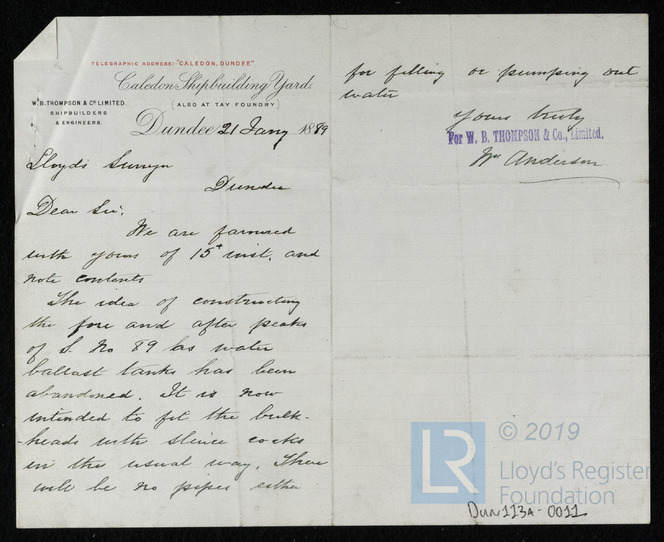 TELEGRAPHIC ADDRESS:-"CALEDON, DUNDEE"
Caledon Shipbuilding Yard.
(ALSO AT TAY FOUNDRY)
WM B. THOMPSON & CO LIMITED.
SHIPBUILDERS
& ENGINEERS.
Dundee 21 Jany 1889
Lloyds Surveyor
Dundee
Dear Sir.
We are favoured
with yours of 15t inst. and
note contents
The idea of constructing
the fore and after peaks
of S. No 89 as water
ballast tanks has been
abandoned. It is now
intended to fit the bulk-
-heads with sluice cocks
in the usual way. There
will be no pipes either
for filling or pumping out
water
Yours truly
For W. B. THOMPSON & Co., Limited.
Wm Anderson
LR © 2019
Lloyd's Register
Foundation
DUN113A-0011